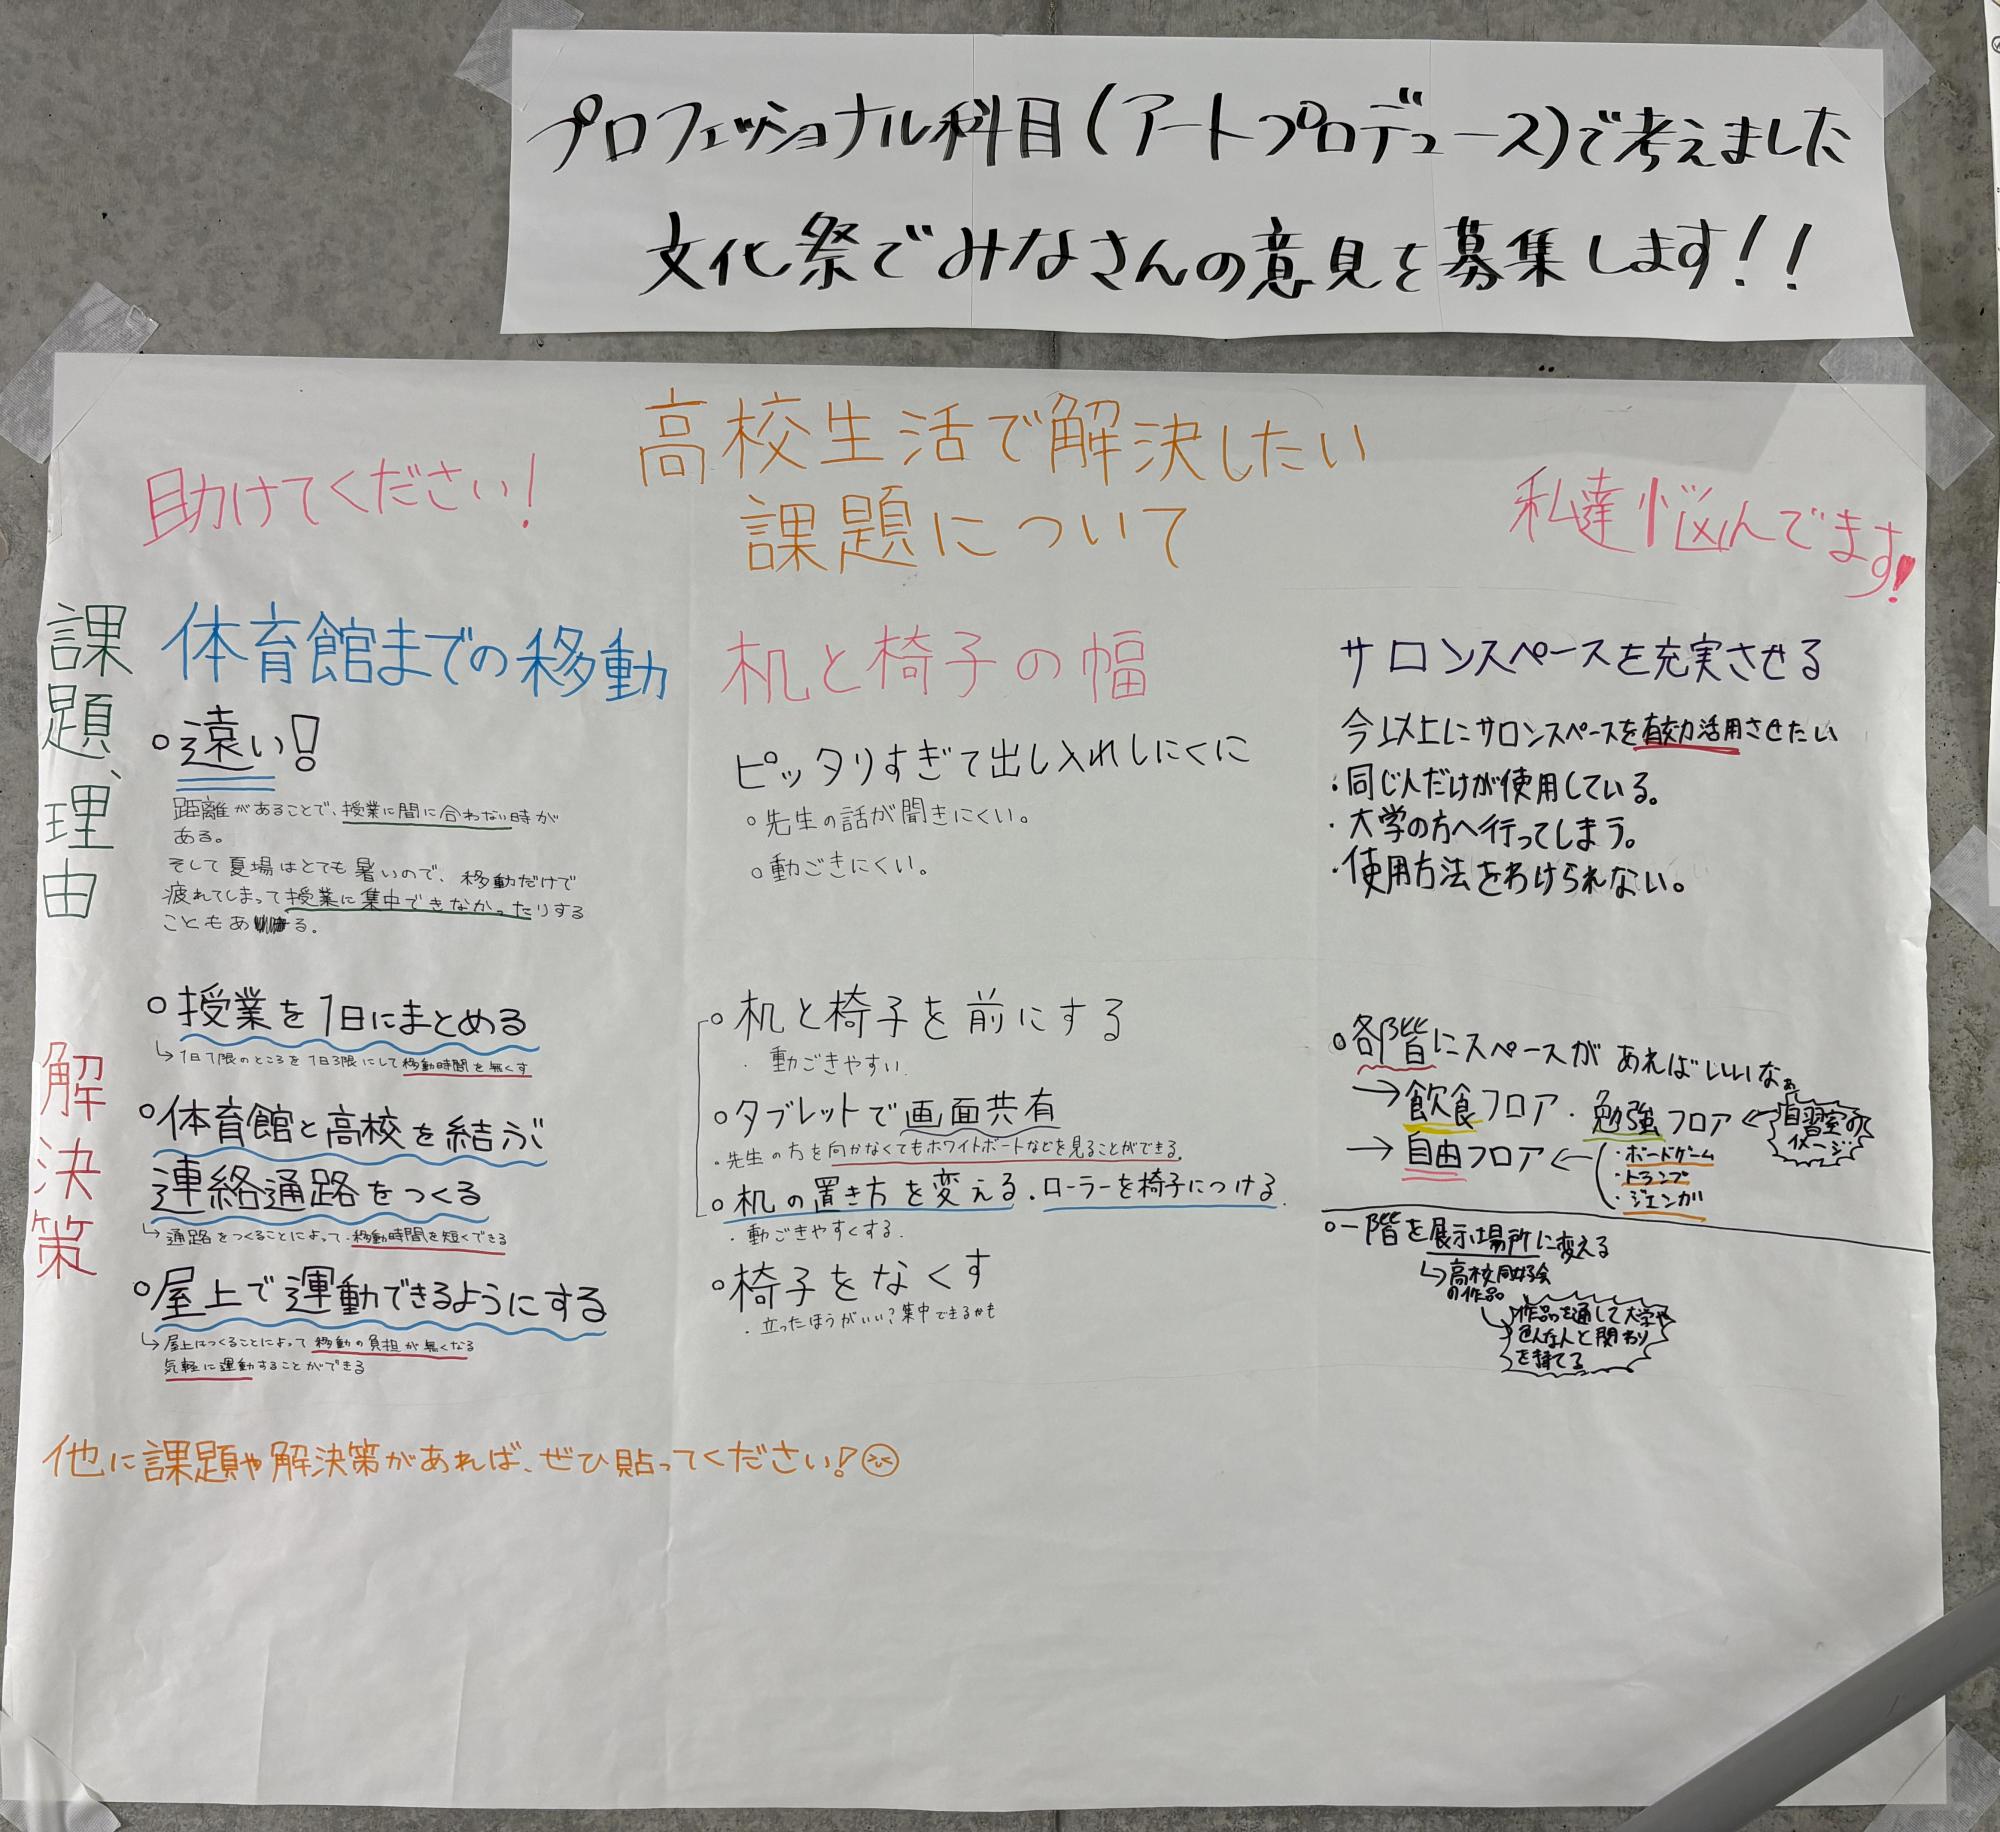 プロフェッショナル科目(アートプロデュース)で考えました
文化祭でみなさんの意見を募集します!!
高校生活で解決したい
課題について
助けてください!
私達悩んでます!
課題、理由
体育館までの移動
○遠い!
距離があることで、授業に間に合わない時が
ある。
そして夏場はとても暑いので、移動だけで
疲れてしまって授業に集中できなかったりする
こともある。
机と椅子の幅
ピッタリすぎて出し入れしにくに
○先生の話が聞きにくい。
○動ごきにくい。
サロンスペースを充実させる
今以上にサロンスペースを有効活用させたい
・同じ人だけが使用している。
・大学の方へ行ってしまう。
・使用方法をわけられない。
解決策
○授業を1日にまとめる
↳1日1限のところを1日3限にして移動時間を無くす
○体育館と高校を結ぶ
連絡通路をつくる
↳通路をつくることによって・移動時間を短くできる
○屋上で運動できるようにする
↳屋上につくることによって移動の負担が無くなる
気軽に運動することができる
○机と椅子を前にする
・動ごきやすい.
○タブレットで画面共有
・先生の方を向かなくてもホワイトボードなどを見ることができる.
○机の置き方を変える.ローラーを椅子につける.
・動ごきやすくする.
○椅子をなくす
・立ったほうがいい?集中できるかも
○各階にスペースがあればいいなぁ
→飲食フロア・勉強フロア←自習室のイメージ
→自由フロア←
・ボードゲーム
・トランプ
・ジェンガ
○一階を展示場所に変える
↳高校同好会
の作品
作品を通して大学や
色んな人と関わり
を持てる
他に課題や解決策があれば、ぜひ貼ってください!